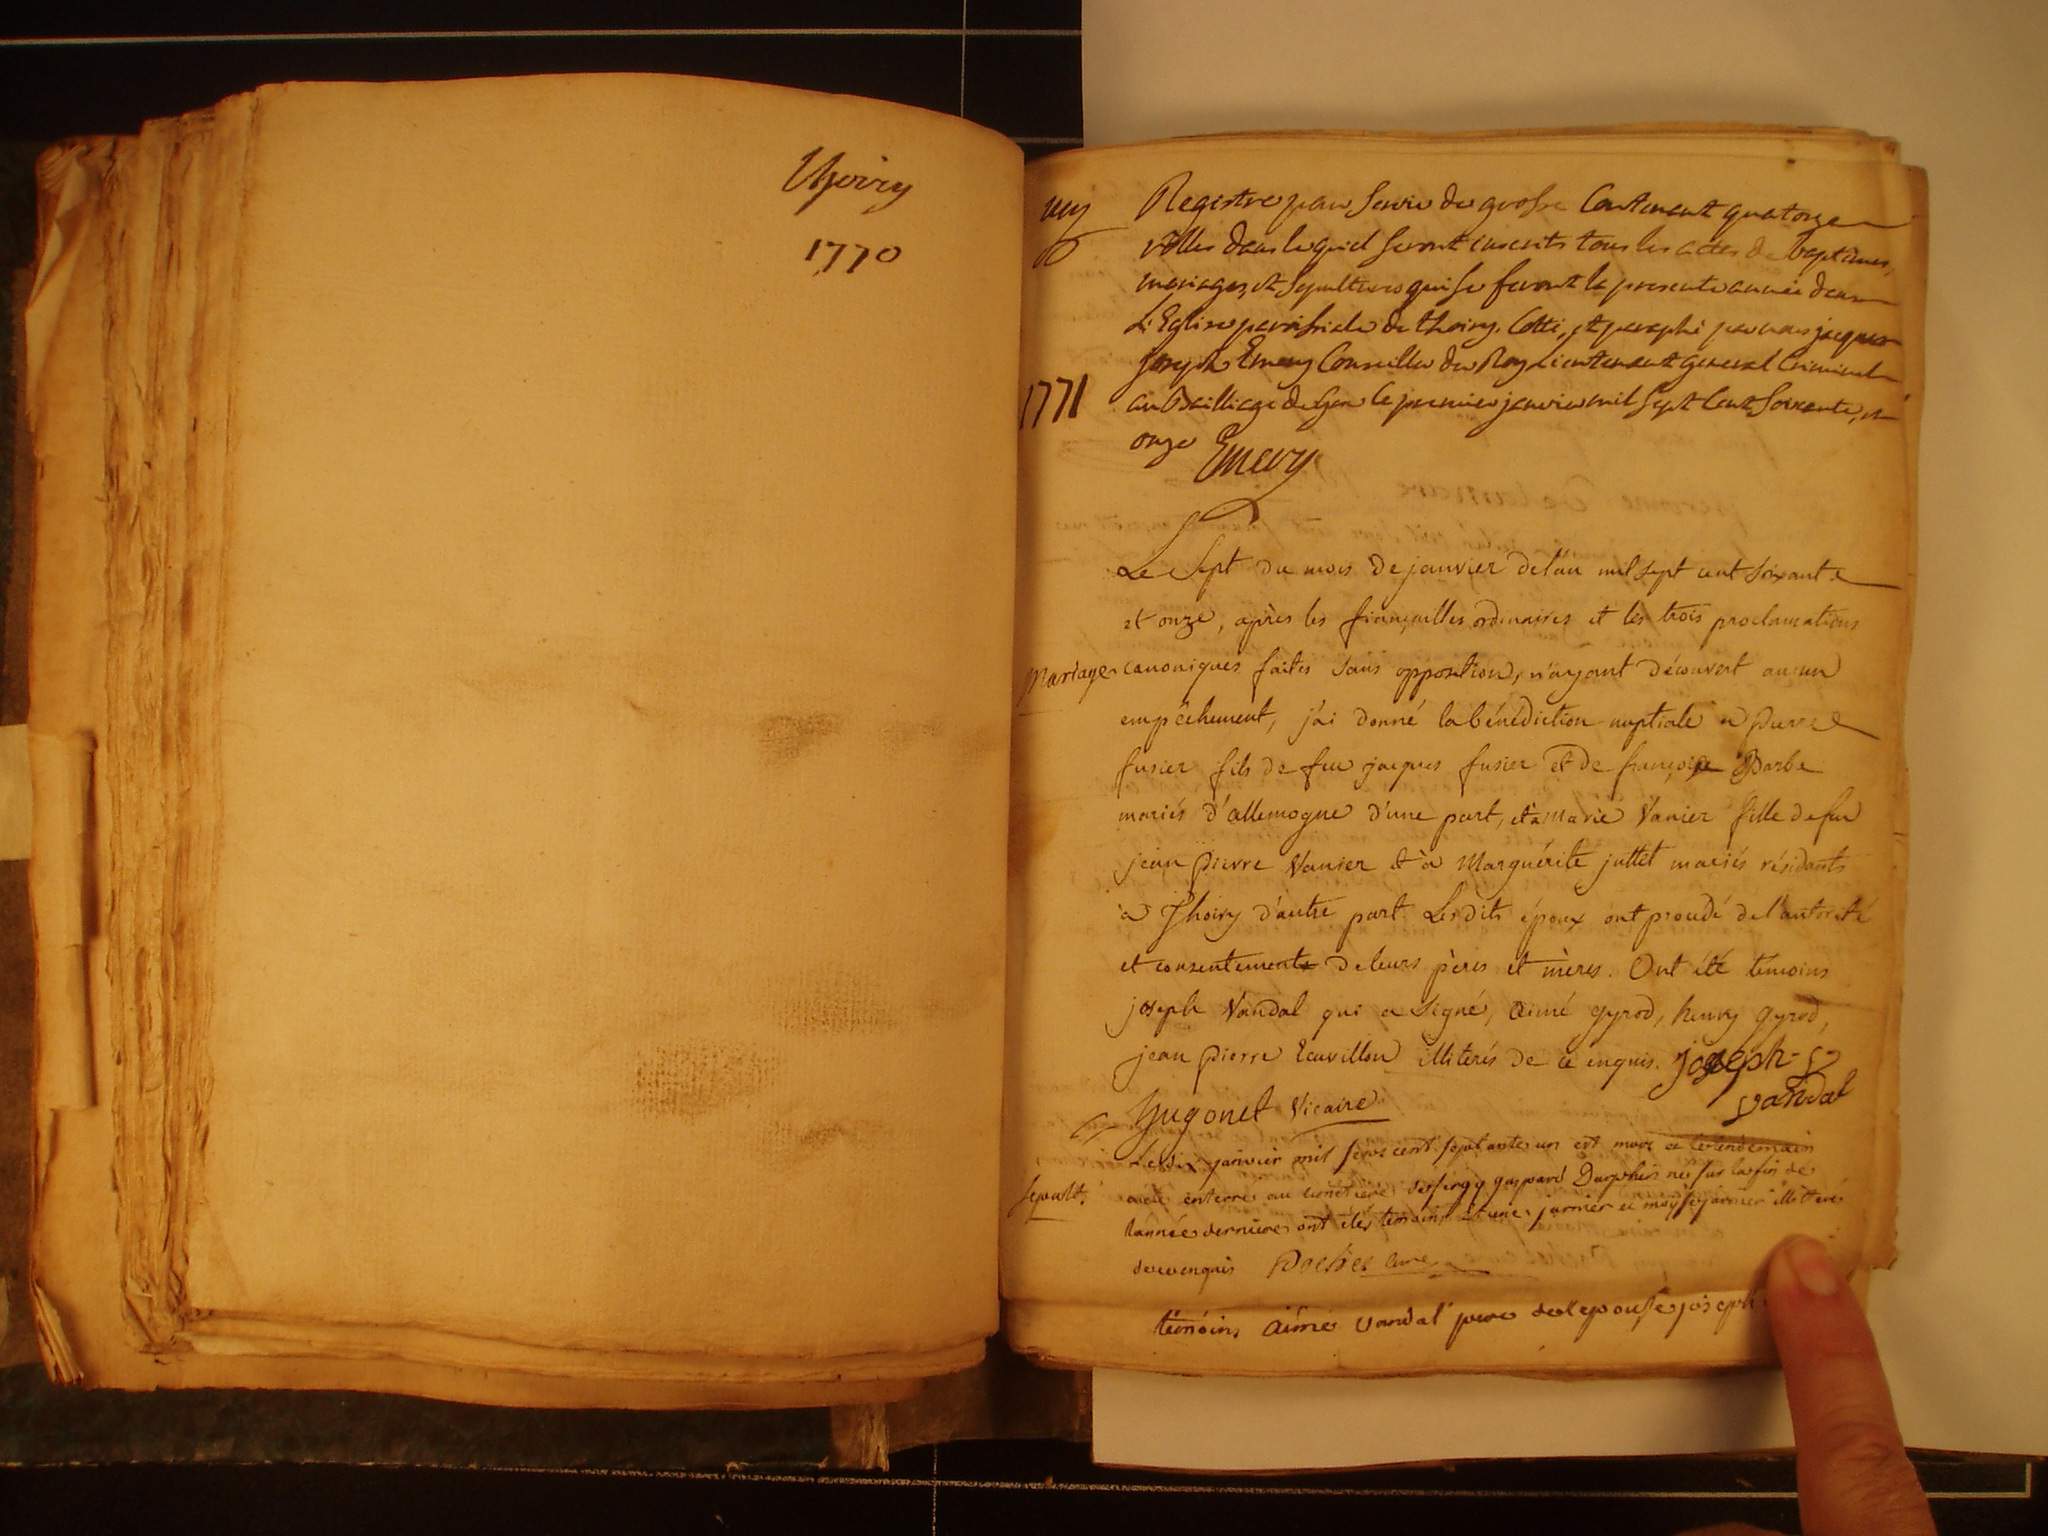 Thoiry
1770
Registre pour servir de grosse Contenant quatorze
rolles dans lequel seront inscrits tous les actes de baptêmes,
mariages, et sepultures qui se feront la presente année dans
L'Eglise paroissiale de thoiry, Cotté, et paraphé par nous jacques
joseph Emery Conseiller du Roy Lieutenant General Criminel
1771 au Bailliage de Gex le premier janvier mil Sept Cent Soixante, et
onze Emery
Le Sept du mois de janvier de l'an mil sept cent soixante
et onze, après les fiançailles ordinaires et les trois proclamations
Mariage canoniques faites sans opposition, n'ayant découvert aucun
empêchement, j'ai donné la bénédiction nuptiale a pierre
fusier fils de feu jacques fusier et de françoise Barbe
mariés d'allemogne d'une part, et à Marie Vanier fille de feu
jean pierre Vanier et à Marguérite juttet mariés résidants
à Thoiry d'autre part. Lesdits époux ont procédé de l'autorité
et consentement de leurs pères et mères. Ont été témoins
joseph Vandal qui a signé, aimé gyrod, henry gyrod,
jean pierre Ecuvillon illiterés de ce enquis. joseph
vandal
Hugonet Vicaire
le dix janvier mil sept cent septante un est mort et le lendemain
Sepult. a été enterré au cimetière de sergy gaspard Dauphin né sur la fin de
l'année derniere ont étés temoins jarnier et jarnier illitteré
de ce enquis Pochet curé
témoins aimé vandal pere de l'epouse joseph